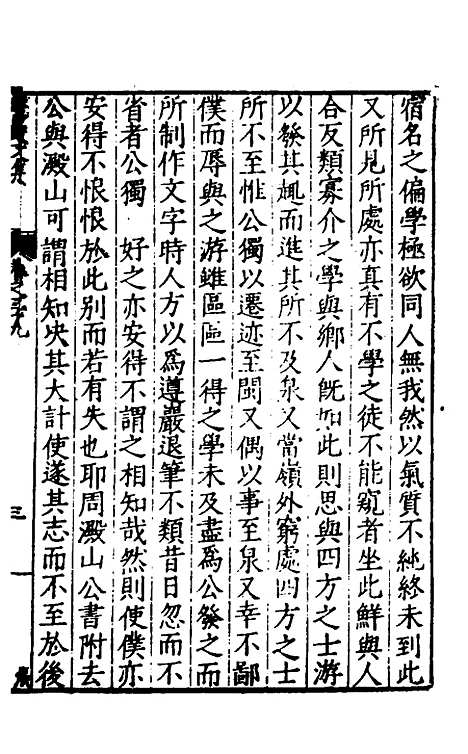 宿名之偏學極欲同人無我然以氣質不純終未到此
又所見所處亦真有不學之徒不能窺者坐此鮮與人
合反類寡介之學與鄉人旣如此則思與四方之士游
以發其趣而進其所不及泉又當嶺外窮處四方之士
所不至惟公獨以遷迹至閩又偶以事至泉又幸不鄙
僕而辱與之游雖區區一得之學未及盡爲公發之而
所制作文字時人方以爲遵嚴退筆不類昔日忽而不
省者公獨 好之亦安得不謂之相知哉然則使僕亦
安得不恨恨於此別而若有失也耶周澱山公書附去
公與澱山可謂相知决其大計使遂其志而不至於後
三